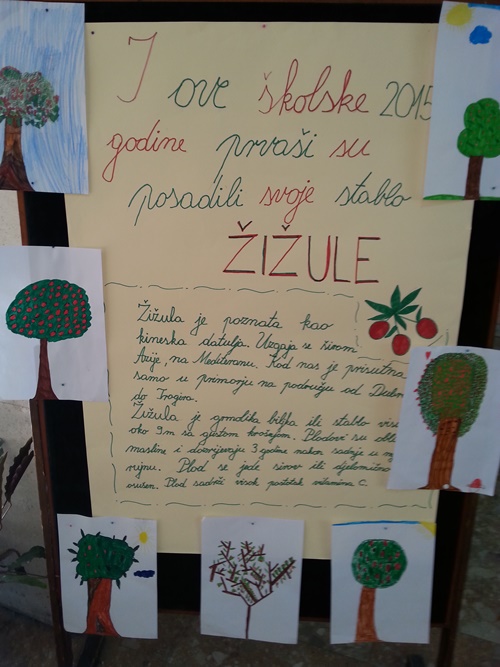 I ove školske 2015
godine prvaši su
posadili svoje stablo
ŽIŽULE
Žižula je poznata kao
kineska datulja. Uzgaja se širom
Azije, na Mediteranu. Kod nas je prisutna
samo u primorju na području od
do Trogira.
Žižula je grmolika biljka ili stablo
oko 9m sa gustom krošnjom. Plodovi su
masline i dozrijevaju 3 godine nakon sadnje u
rujnu. Plod se jede sirov ili djelomično
osušen. Plod sadrži visok postotak vitamina C.